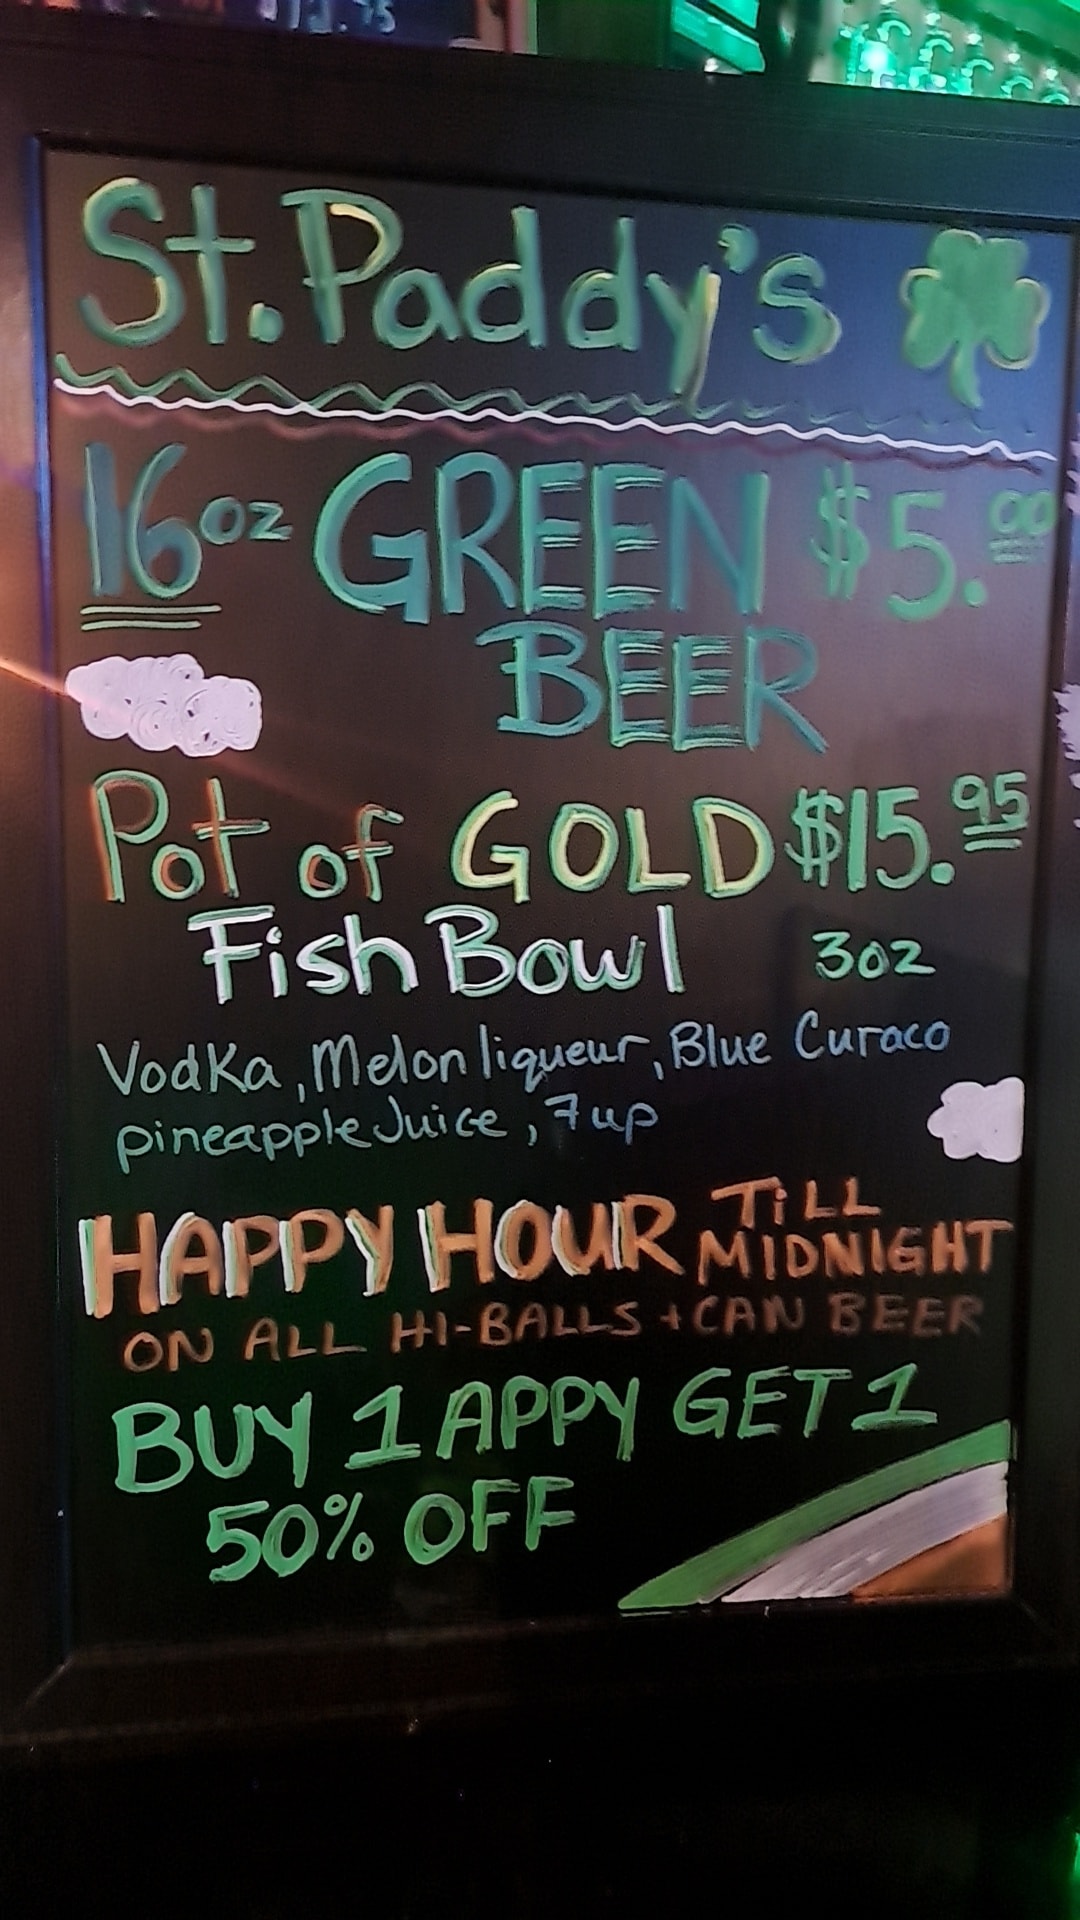 St. Paddy's
16oz GREEN $5.00
BEER
Pot of GOLD $15.95
Fish Bowl 3oz
Vodka, Melon liqueur, Blue Curaco
pineapple Juice, 7up
HAPPY HOUR TiLL
MIDNIGHT
ON ALL HI-BALLS + CAN BEER
BUY 1 APPY GET 1
50% OFF